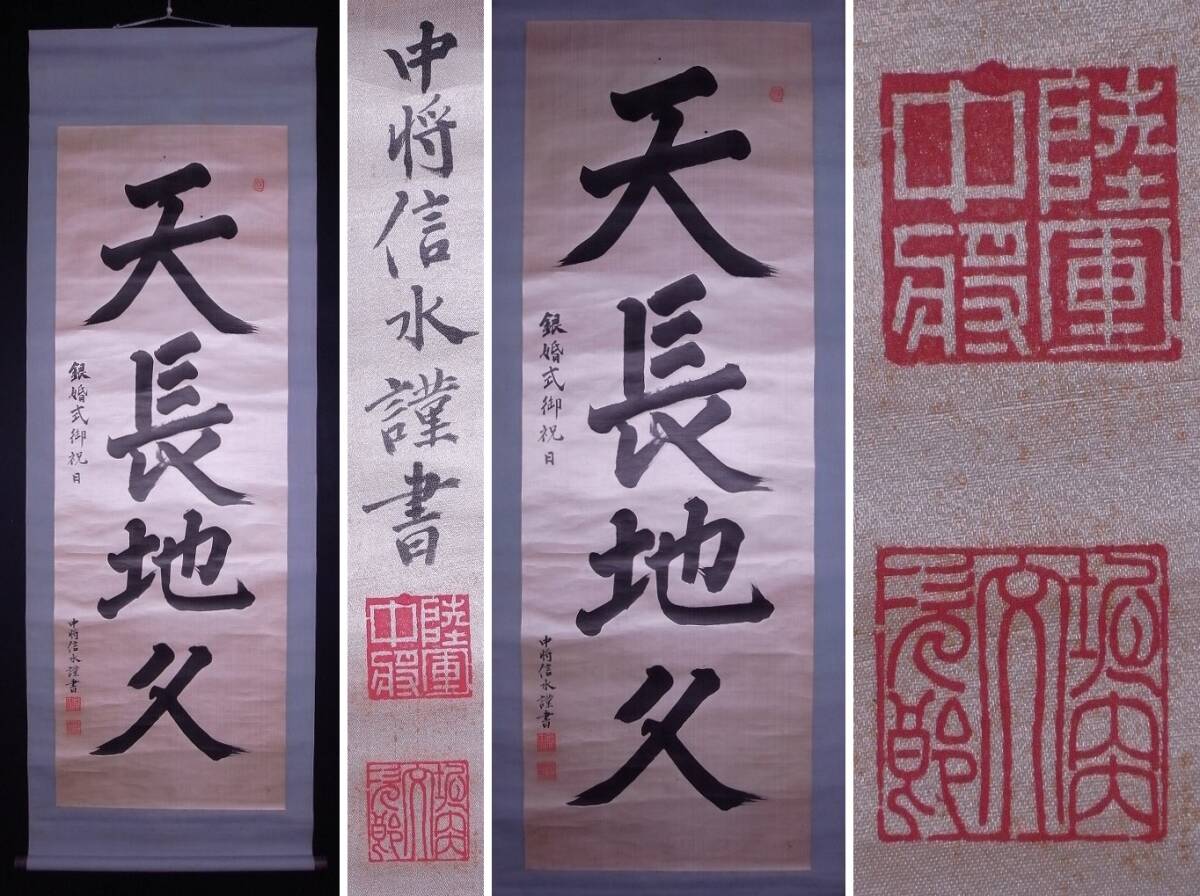 天長地久
銀婚式御祝日
中将信水謹書
中将信水謹書
陸軍中将
堀内文次郎
天長地久
銀婚式御祝日
中将信水謹書
陸軍中将
堀内文次郎